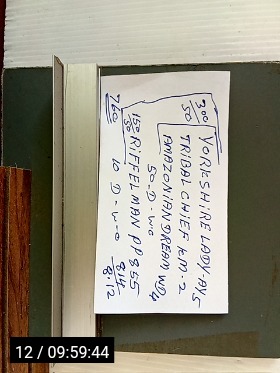 300 YORKSHIRE LADY-AYS
50 TRIBAL CHIEF KM-2
AMAZONIAN DREAM WD4
50.D-WO
150 RIFFELMAN PP 855
50
760 10 D-W-O 814
812
12 / 09:59:44